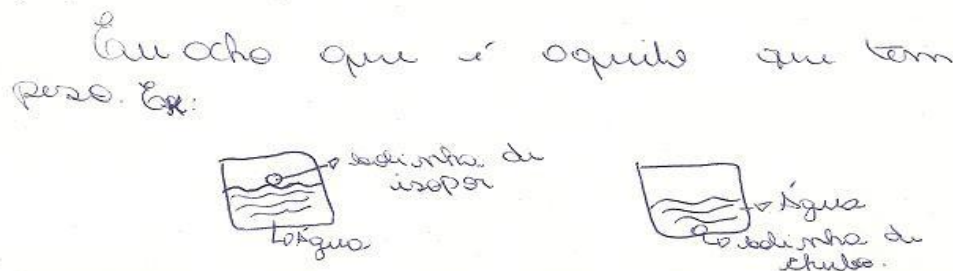 Eu acho que é aquilo que tem
peso. Ex:
bolinha de
isopor
Água
Água
bolinha de
chubo.